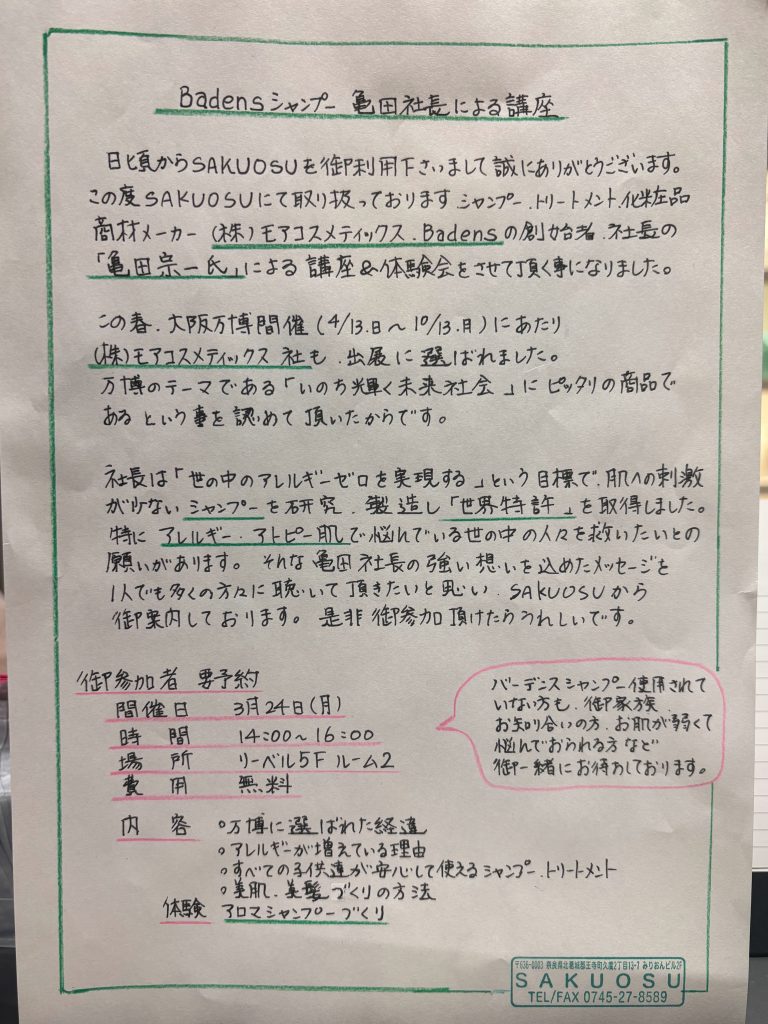 Badensシャンプー 亀田社長による講座
日頃からSAKUOSUを御利用下さいまして誠にありがとうございます。
この度SAKUOSUにて取り扱っております シャンプー.トリートメント.化粧品
商材メーカー (株)モアコスメティックス.Badensの創始者.社長の
「亀田宗一氏」による 講座&体験会をさせて頂く事になりました。
この春.大阪万博開催(4/13.日〜10/13.月)にあたり
(株)モアコスメティックス 社も.出展に選ばれました。
万博のテーマである「いのち輝く未来社会」に ピッタリの商品で
ある という事を認めて頂いたからです。
社長は「世の中のアレルギーゼロを実現する」という目標で.肌への刺激
が少ない シャンプーを研究.製造し「世界特許」を取得しました。
特に アレルギー・アトピー肌で悩んでいる世の中の人々を救いたいとの
願いがあります。それな亀田社長の強い想いを込めたメッセージを
1人でも多くの方々に聴いて頂きたいと思い.SAKUOSUから
御案内しております。是非 御参加頂けたらうれしいです。
御参加者 要予約
開催日 3月24日(月)
時間 14:00〜16:00
場所 リーベル5F ルーム2
費用 無料
バーデンスシャンプー使用されて
いない方も.御家族.
お知り合いの方.お肌が弱くて
悩んでおられる方など
御一緒にお待ちしております。
内容 ○万博に選ばれた経達
○アレルギーが増えている理由
○すべての子供達が安心して使えるシャンプー.トリートメント
○美肌.美髪づくりの方法
体験 アロマシャンプーづくり
〒636-0003 奈良県北葛城郡王寺町久度2丁目13-7 みりおんビル2F
SAKUOSU
TEL/FAX 0745-27-8589